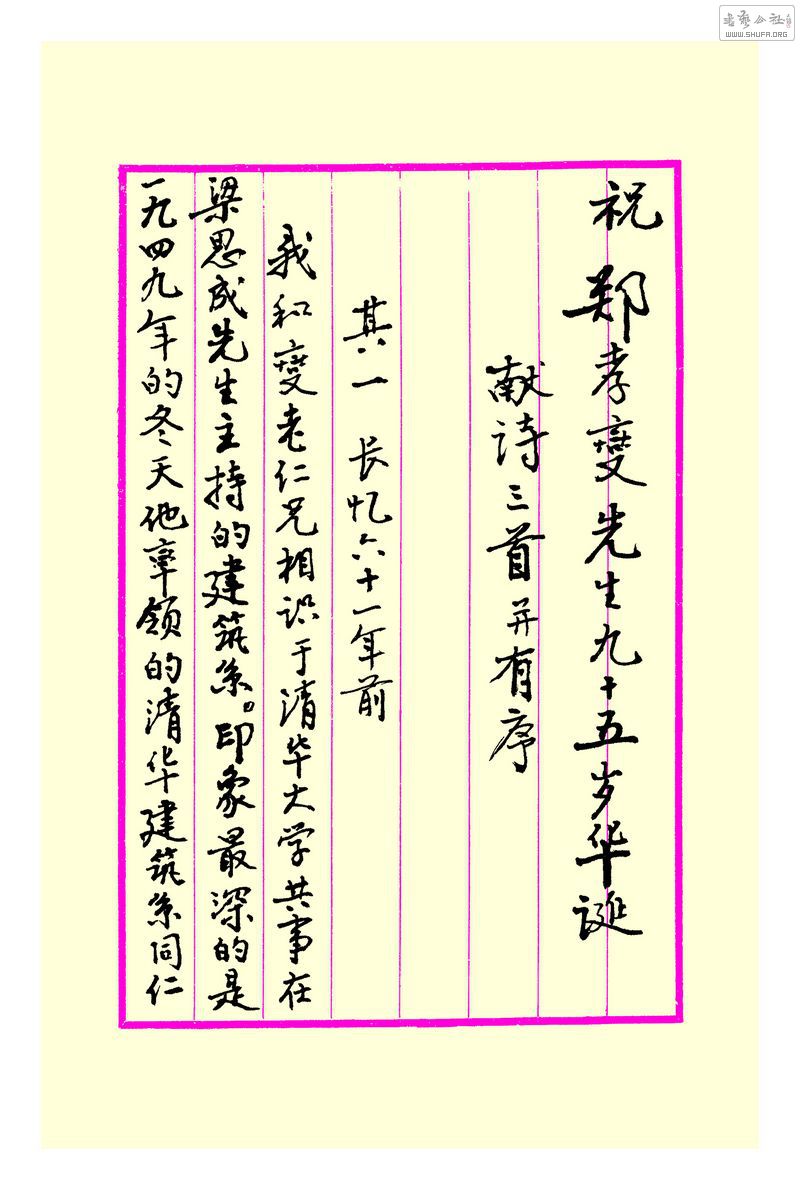 祝郑孝燮先生九十五岁华诞
献诗三首并有序
其一 长忆六十一年前
我和燮老仁兄相识于清华大学共事在
梁思成先生主持的建筑系。印象最深的是
一九四九年的冬天他率领的清华建筑系同仁
书艺公社
WWW.SHUFA.ORG